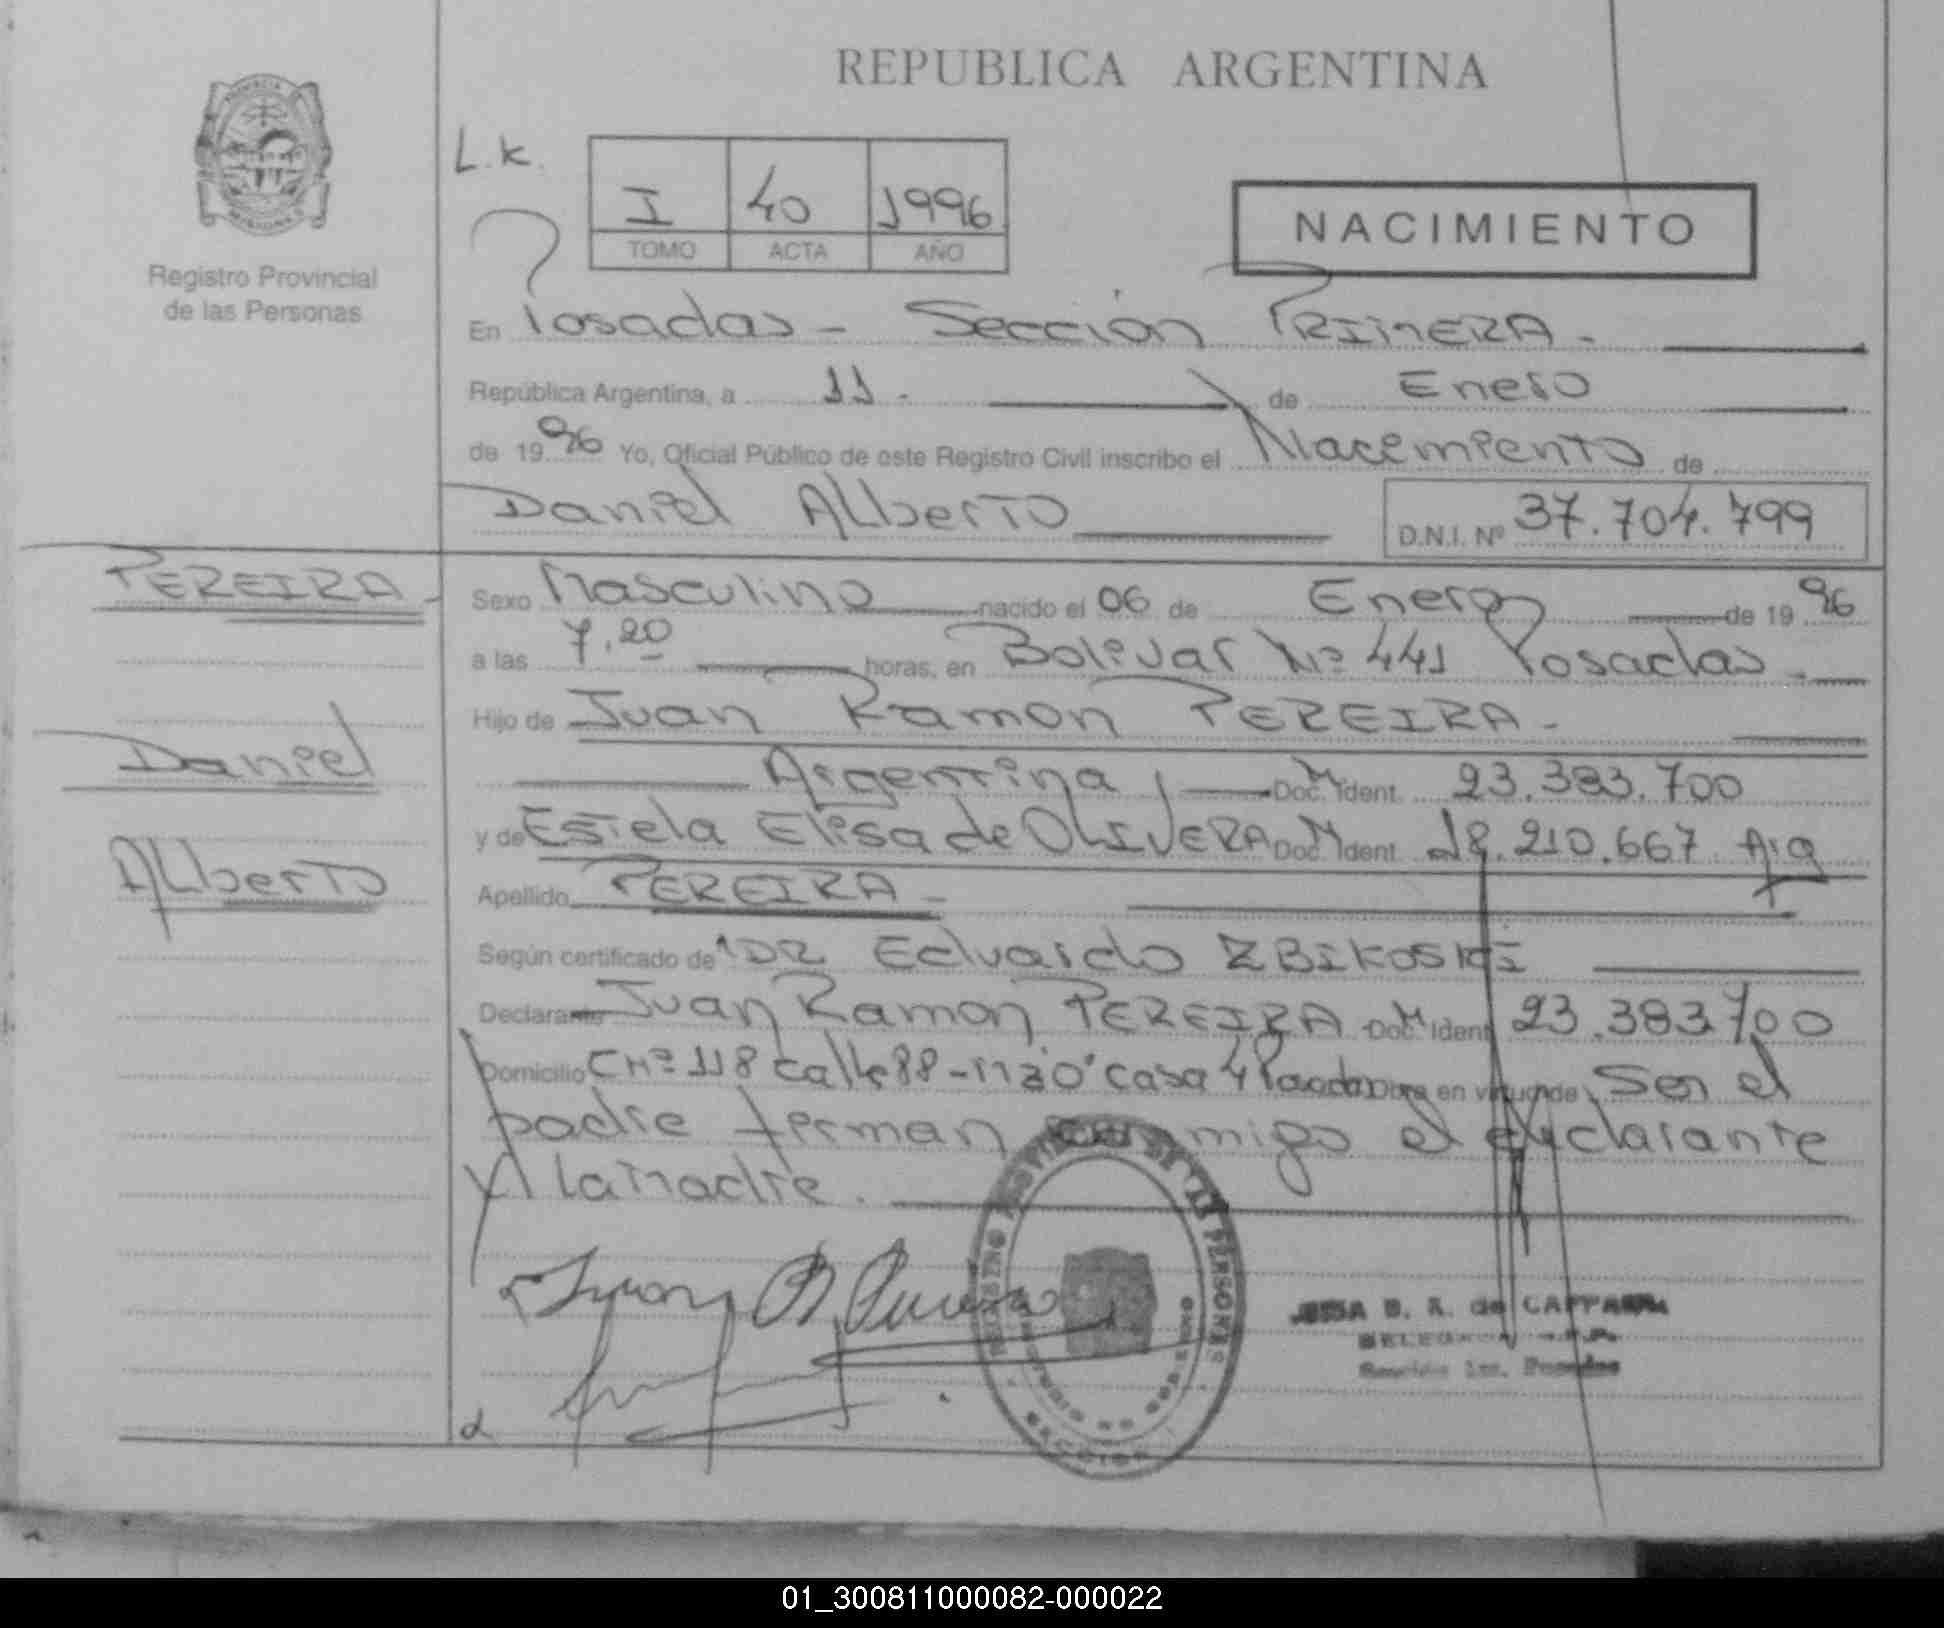 REPUBLICA ARGENTINA
Registro Provincial
de las Personas
L.K.
I 40 1996
TOMO ACTA AÑO
NACIMIENTO
En Posadas - Sección PRIMERA -
República Argentina, a 11. de Enero
de 1996 Yo, Oficial Público de este Registro Civil inscribo el Nacimiento de
Daniel Alberto
D.N.I. Nº 37.704.799
PEREIRA -
Daniel
Alberto
Sexo Masculino nacido el 06 de Enero de 1996
a las 7,20 horas, en Bolivar Nº 441 Posadas -
Hijo de Juan Ramon PEREIRA -
Argentina, Doc. Ident. 23.383.700
y de Estela Elisa de OLIVERA Doc. Ident. 18.210.667 Arg
Apellido PEREIRA -
Según certificado de DR Eduardo ZBIKOSKI
Declarante Juan Ramon PEREIRA Doc. Ident. 23.383.700
Domicilio CHº 118 calle 88 - casa 4 Posadas Obra en virtud de Ser el
padre firman conmigo el declarante
y la Madre.
B. A. de
Sección 1ra. Posadas
01_300811000082-000022